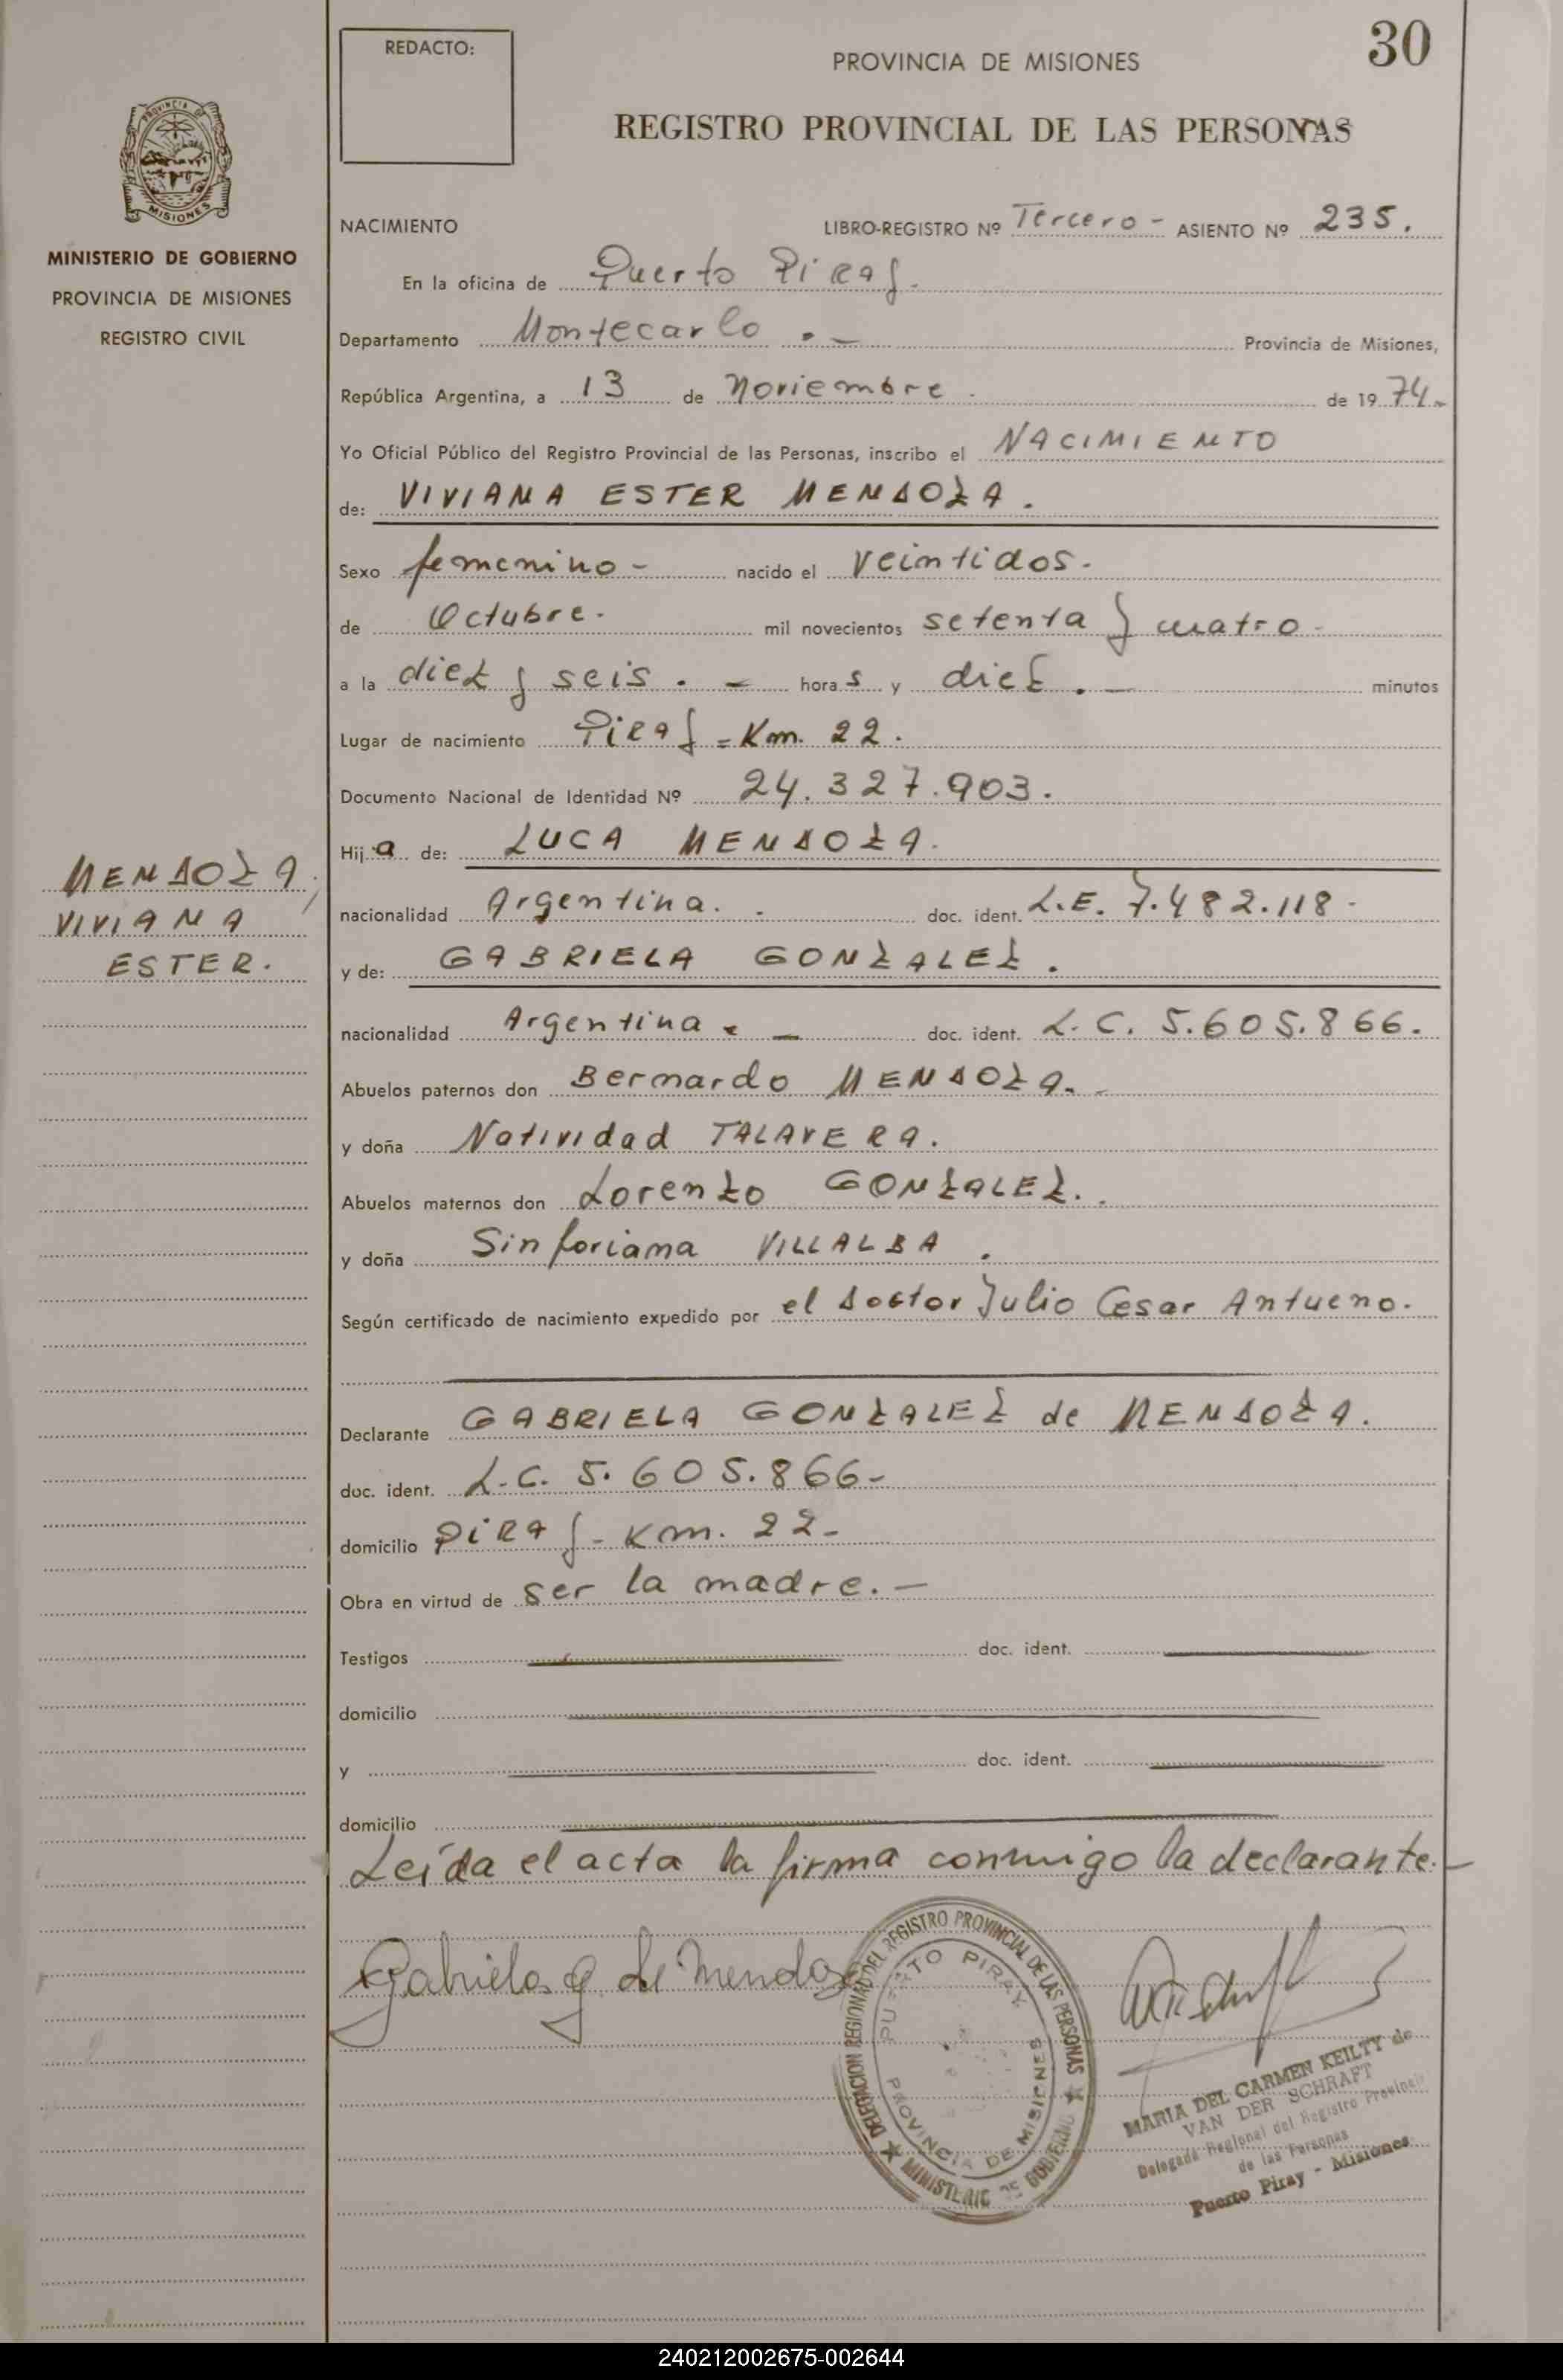 30
REDACTO:
PROVINCIA DE MISIONES
REGISTRO PROVINCIAL DE LAS PERSONAS
PROVINCIA DE
MISIONES
MINISTERIO DE GOBIERNO
PROVINCIA DE MISIONES
REGISTRO CIVIL
NACIMIENTO LIBRO-REGISTRO Nº Tercero - ASIENTO Nº 235.
En la oficina de Puerto Piray.
Departamento Montecarlo . - Provincia de Misiones,
República Argentina, a 13 de Noviembre . de 19 74.-
Yo Oficial Público del Registro Provincial de las Personas, inscribo el NACIMIENTO
de: VIVIANA ESTER MENDOZA.
Sexo femenino - nacido el veintidos.
de Octubre. mil novecientos setenta y cuatro -
a la diez y seis . - horas y diez . - minutos
Lugar de nacimiento Piray = Km. 22.
Documento Nacional de Identidad Nº 24.327.903.
Hija de: LUCA MENDOZA.
MENDOZA,
VIVIANA
ESTER.
nacionalidad Argentina. . doc. ident. L.E. 7.482.118-
y de: GABRIELA GONZALEZ .
nacionalidad Argentina . - doc. ident. L.C. 5.605.866.
Abuelos paternos don Bernardo MENDOZA.-
y doña Natividad TALAVERA.
Abuelos maternos don Lorenzo GONZALEZ. .
y doña Sinforiana VILLALBA .
Según certificado de nacimiento expedido por el Doctor Julio Cesar Antueno.
Declarante GABRIELA GONZALEZ de MENDOZA.
doc. ident. L.C. 5.605.866-
domicilio PIRAY - Km. 22-
Obra en virtud de ser la madre. -
Testigos doc. ident.
domicilio
y doc. ident.
domicilio
Leída el acta la firma conmigo la declarante.-
Gabriela G. de Mendoza
DELEGACION REGIONAL DEL REGISTRO PROVINCIAL DE LAS PERSONAS
MINISTERIO DE GOBIERNO
PUERTO PIRAY
PROVINCIA DE MISIONES
MARIA DEL CARMEN KEILTY de
VAN DER SCHRAFT
Delegada Regional del Registro Provincial
de las Personas
Puerto Piray - Misiones
240212002675-002644